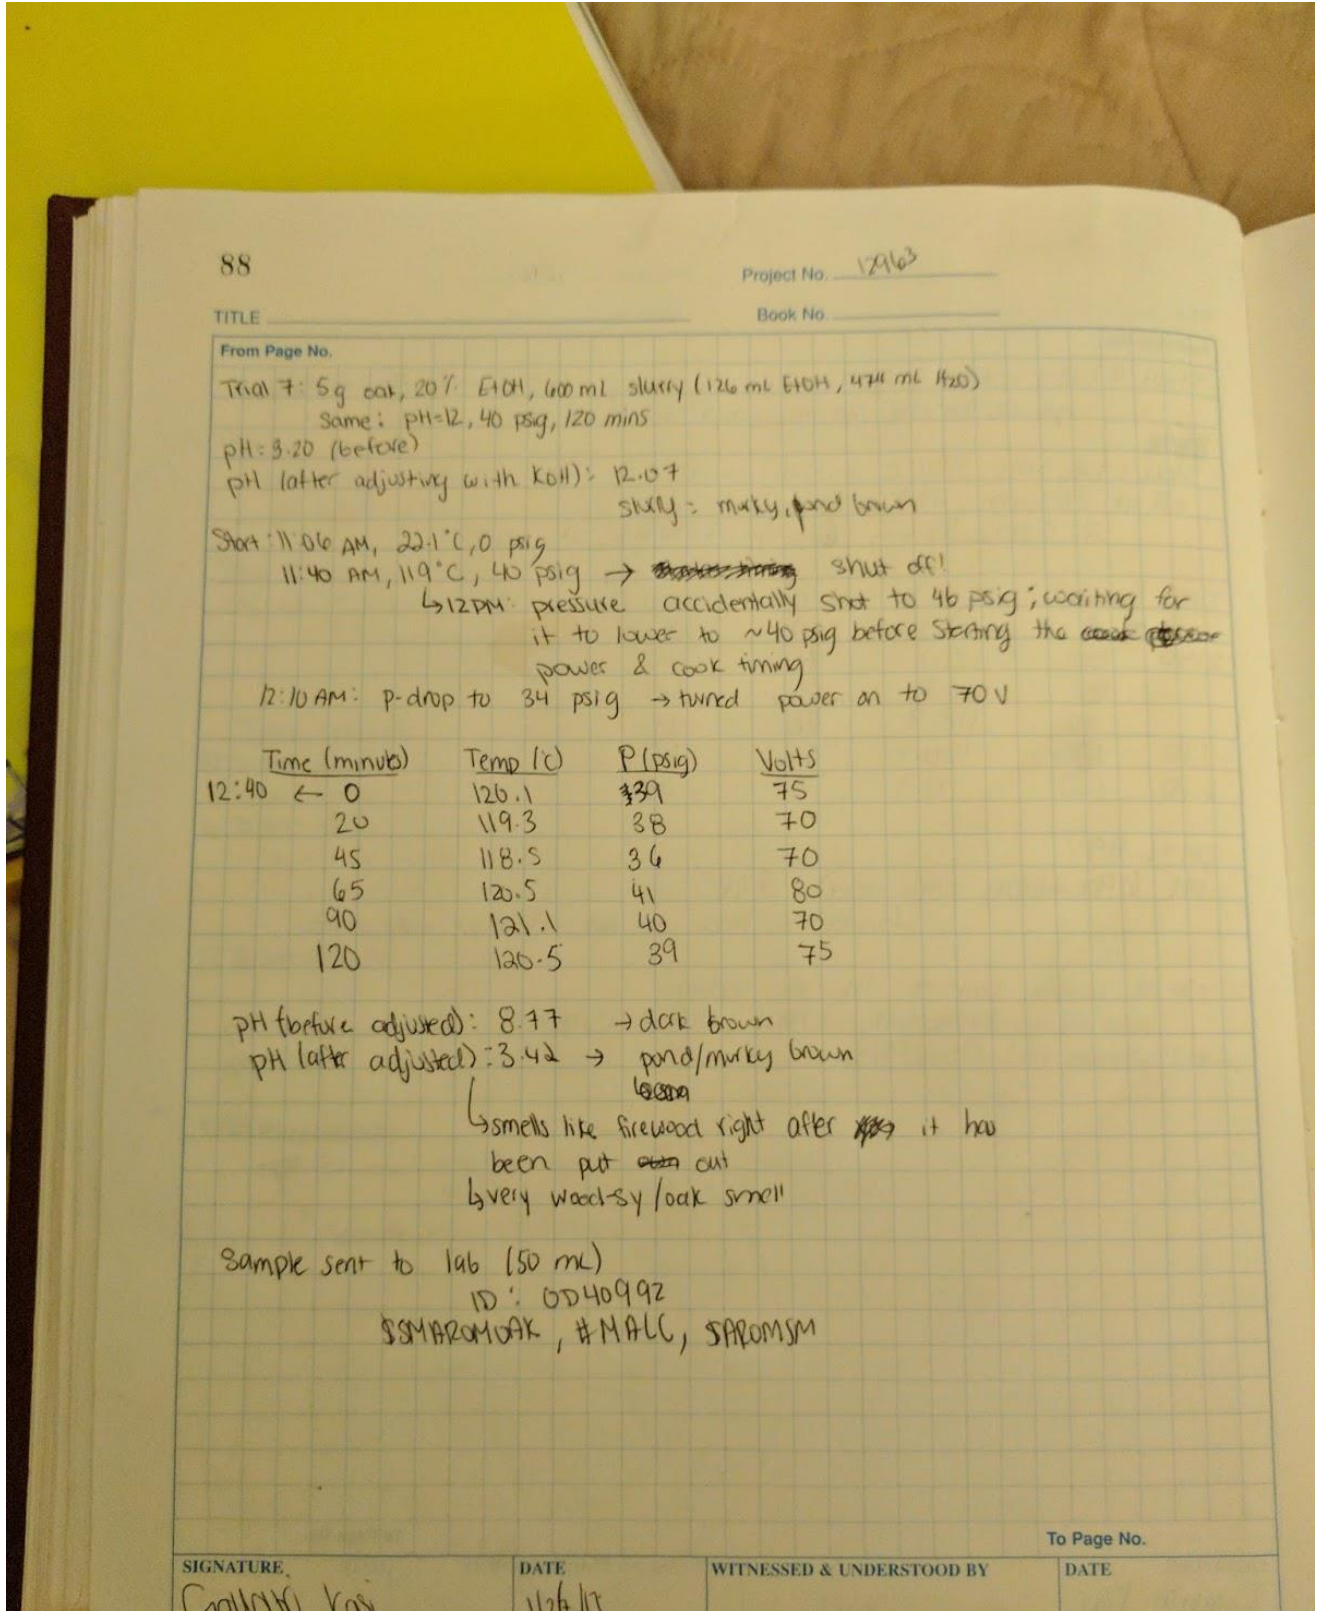 88
Project No. 12963
TITLE
Book No.
From Page No.
Trial 7: 5g oak, 20% EtOH, 600 mL slurry (126 mL EtOH, 474 mL H2O)
Same: pH=12, 40 psig, 120 mins
pH: 3.20 (before)
pH (after adjusting with KOH): 12.07
slurry = murky, pond brown
Start: 11:06 AM, 22.1°C, 0 psig
11:40 AM, 119°C, 40 psig → shut off!
↳12PM: pressure accidentally shot to 46 psig; waiting for
it to lower to ~40 psig before starting the
power & cook timing
12:10 AM: p-drop to 34 psig → turned power on to 70 V
Time (minutes) Temp (°C) P (psig) Volts
12:40 ← 0 120.1 39 75
20 119.3 38 70
45 118.5 36 70
65 120.5 41 80
90 121.1 40 70
120 120.5 39 75
pH (before adjusted): 8.77 → dark brown
pH (after adjusted): 3.42 → pond/murky brown
↳smells like firewood right after it has
been put out
↳very wood-sy/oak smell
Sample sent to lab (50 mL)
ID: OD40992
$SMAROMOAK, #MALC, $AROMSM
To Page No.
SIGNATURE DATE WITNESSED & UNDERSTOOD BY DATE